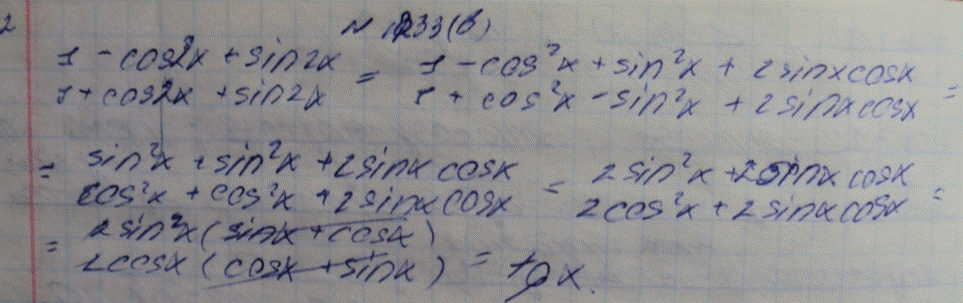 2
N 1233(б)
1 - cos2x + sin2x / 1 + cos2x + sin2x = 1 - cos²x + sin²x + 2sinxcosx / 1 + cos²x - sin²x + 2sinxcosx =
= sin²x + sin²x + 2sinx cosx / cos²x + cos²x + 2sinxcosx = 2sin²x + 2sinx cosx / 2cos²x + 2sinxcosx =
= 2sin²x(sinx + cosx) / 2cosx(cosx + sinx) = tgx.